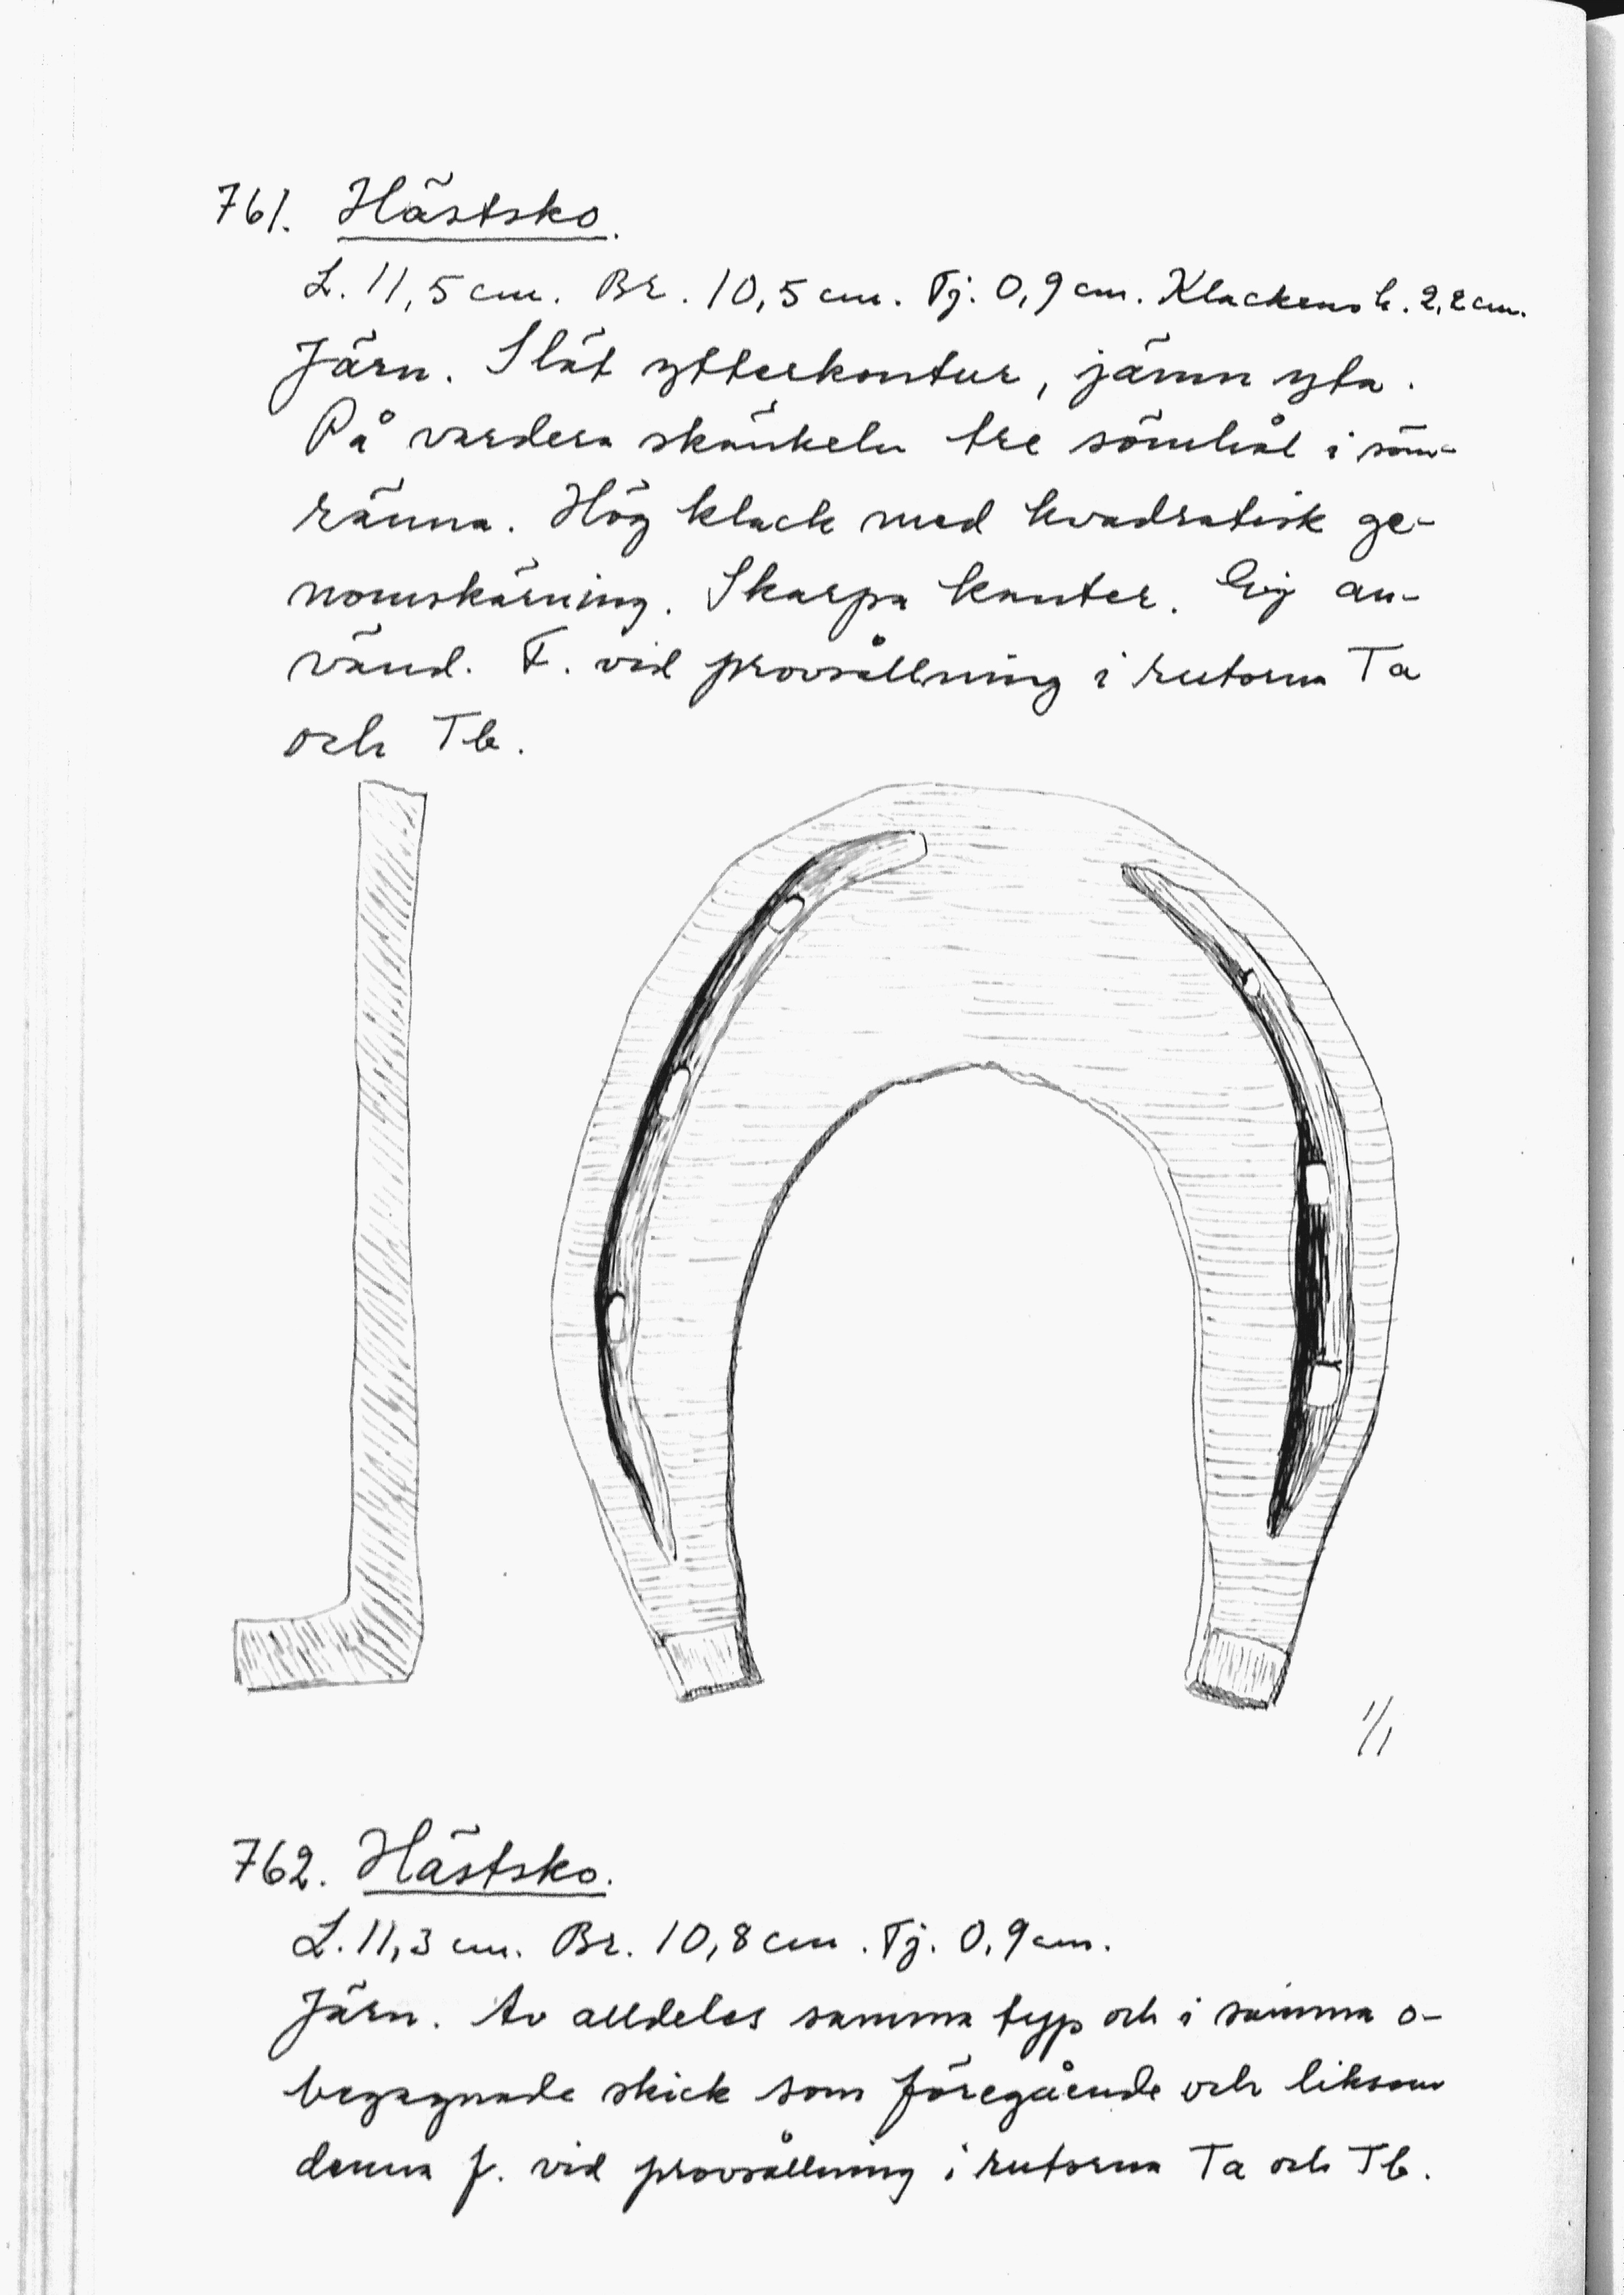 761. Hästsko.
L. 11,5 cm. Br. 10,5 cm. Tj. 0,9 cm. Klackens h. 2,2 cm.
Järn. Slät ytterkontur, jämn yta.
På vardera skänkeln tre sömhål i söm-
ränna. Hög klack med kvadratisk ge-
nomskärning. Skarpa kanter. Ej an-
vänd. F. vid provsållning i rutorna Ta
och Tb.
1/1
762. Hästsko.
L. 11,3 cm. Br. 10,8 cm. Tj. 0,9 cm.
Järn. Av alldeles samma typ och i samma o-
begagnade skick som föregående och liksom
denna f. vid provsållning i rutorna Ta och Tb.